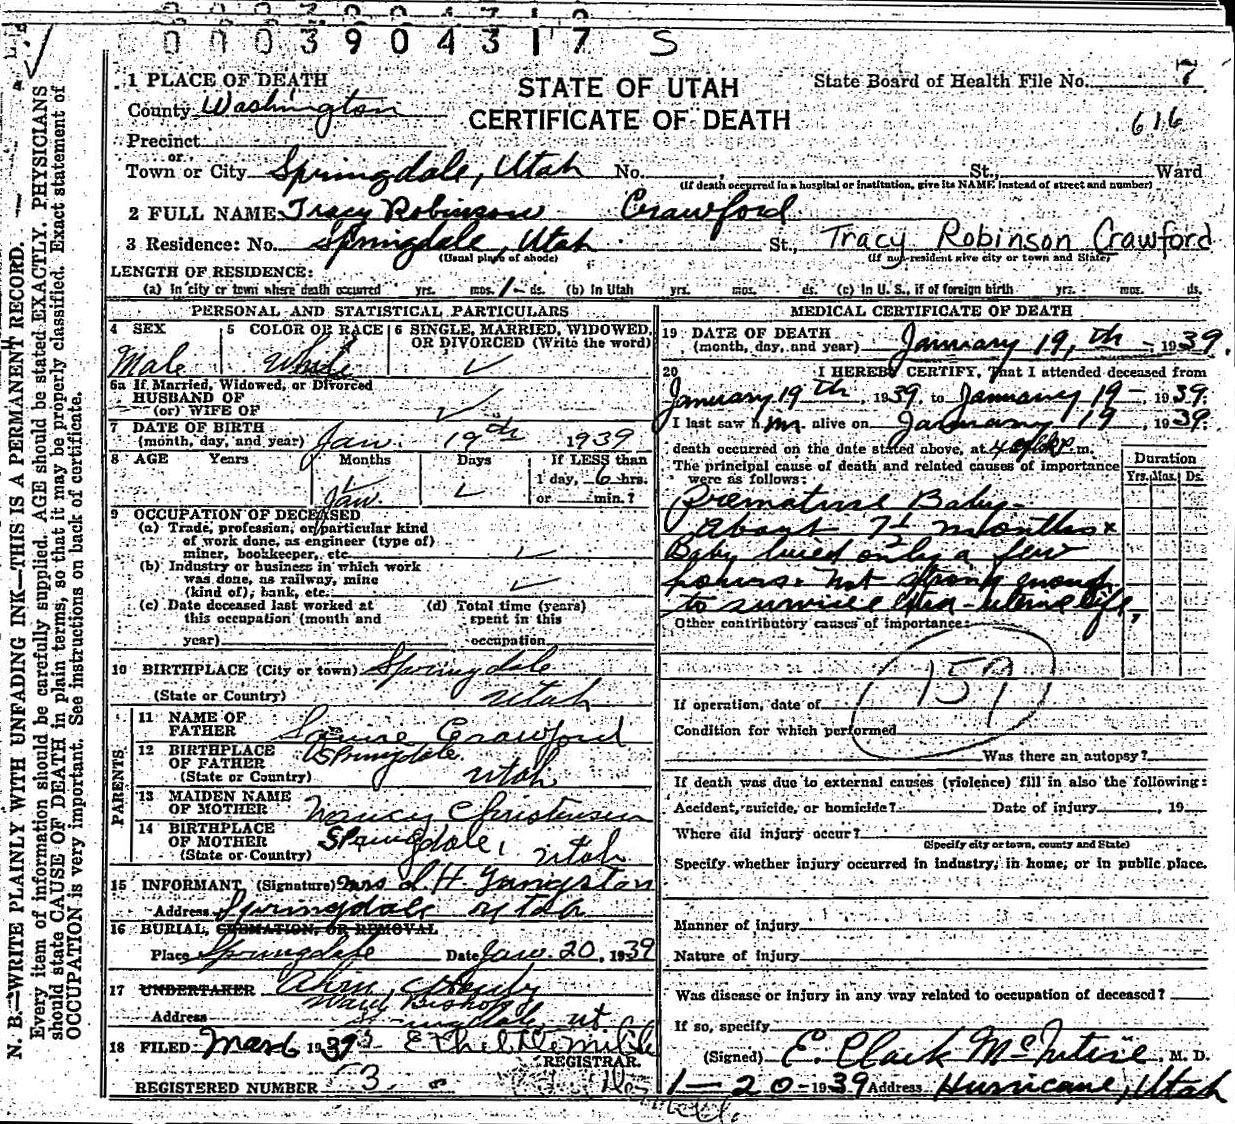 0003904317 S
1 PLACE OF DEATH
STATE OF UTAH
CERTIFICATE OF DEATH
State Board of Health File No. 7
616
County Washington
Precinct
or
Town or City Springdale, Utah No. St., Ward
(If death occurred in a hospital or institution, give its NAME instead of street and number)
2 FULL NAME: Tracy Robinson Crawford
3 Residence: No. Springdale, Utah St., Tracy Robinson Crawford
(Usual place of abode) (If non-resident give city or town and State)
LENGTH OF RESIDENCE:
(a) In city or town where death occurred yrs. mos. 1 ds. (b) In Utah yrs. mos. ds. (c) In U. S., if of foreign birth yrs. mos. ds.
PERSONAL AND STATISTICAL PARTICULARS
4 SEX 5 COLOR OR RACE 6 SINGLE, MARRIED, WIDOWED,
OR DIVORCED (Write the word)
Male White ✓
6a If Married, Widowed, or Divorced
HUSBAND OF
(or) WIFE OF ✓
7 DATE OF BIRTH
(month, day, and year) Jan. 19th 1939
8 AGE Years Months Days If LESS than
1 day, 6 hrs.
or min.?
Jan.
9 OCCUPATION OF DECEASED
(a) Trade, profession, or particular kind
of work done, as engineer (type of)
miner, bookkeeper, etc. ✓
(b) Industry or business in which work
was done, as railway, mine
(kind of), bank, etc. ✓
(c) Date deceased last worked at (d) Total time (years)
this occupation (month and spent in this
year) occupation
10 BIRTHPLACE (City or town) Springdale
(State or Country) Utah
PARENTS
11 NAME OF
FATHER Crawford
12 BIRTHPLACE
OF FATHER Springdale
(State or Country) Utah
13 MAIDEN NAME
OF MOTHER Nancy Christensen
14 BIRTHPLACE
OF MOTHER Springdale,
(State or Country) Utah
15 INFORMANT (Signature) Mrs
Address Springdale Utah
16 BURIAL, CREMATION, OR REMOVAL
Place Springdale Date Jan. 20, 1939
17 UNDERTAKER
Ward Bishop
Address Springdale Ut
18 FILED Mar 6 1939
REGISTRAR.
REGISTERED NUMBER 3
MEDICAL CERTIFICATE OF DEATH
19 DATE OF DEATH
(month, day, and year) January 19,th 1939.
20 I HEREBY CERTIFY, That I attended deceased from
January 19th, 1939. to January 19 - 1939.
I last saw him alive on January 19, 1939.
death occurred on the date stated above, at m.
Duration
The principal cause of death and related causes of importance
were as follows: Yrs. Mos. Ds.
Premature Baby-
About 7½ months
Baby lived only a few
hours. Not strong enough
to survive extra-uterine life.
Other contributory causes of importance:
159
If operation, date of
Condition for which performed
Was there an autopsy?
If death was due to external causes (violence) fill in also the following:
Accident, suicide, or homicide? Date of injury , 19
Where did injury occur?
(Specify city or town, county and State)
Specify whether injury occurred in industry, in home, or in public place.
Manner of injury
Nature of injury
Was disease or injury in any way related to occupation of deceased?
If so, specify
(Signed) E. Clark McIntire, M. D.
1-20-1939 Address Hurricane, Utah
N. B.—WRITE PLAINLY WITH UNFADING INK—THIS IS A PERMANENT RECORD.
Every item of information should be carefully supplied. AGE should be stated EXACTLY. PHYSICIANS
should state CAUSE OF DEATH in plain terms, so that it may be properly classified. Exact statement of
OCCUPATION is very important. See instructions on back of certificate.